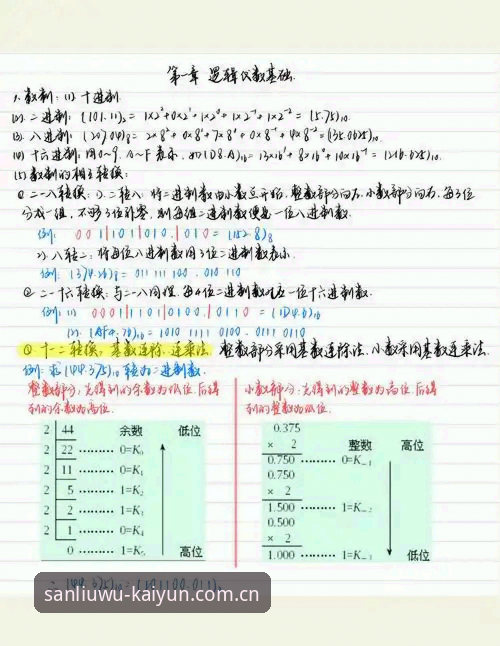 第一章 逻辑代数基础
1.数制: (1) 十进制.
(2). 二进制: (101.11)₂ = 1×2²+0×2¹+1×2⁰+1×2⁻¹+1×2⁻² = (5.75)₁₀
(3). 八进制: (207.04)₈ = 2×8²+0×8¹+7×8⁰+0×8⁻¹+4×8⁻² = (135.0625)₁₀.
(4) 十六进制: 用0~9. A~F表示. 如(D8.A)₁₆ = 13×16¹+8×16⁰+10×16⁻¹ = (216.625)₁₀.
(5) 数制的相互转换:
①二—八转换: 1). 二转八 将二进制数由小数点开始, 整数部分向左, 小数部分向右, 每3位
分成一组, 不够3位补零, 则每组二进制数便是一位八进制数.
例: 001|101|010.|010 = (152.2)₈
2) 八转二: 将每位八进制数用3位二进制数表示.
例: (374.26)₈ = 011 111 100 . 010 110
②二—十六转换: 与二—八同理, 每4位二进制数对应一位十六进制数.
(2). (AF4.76)₁₆ = 1010 1111 0100 . 0111 0110
③十—二转换: 基数连除、连乘法. 整数部分采用基数连除法, 小数采用基数连乘法.
例: 求(44.375)₁₀ 转为二进制数.
整数部分: 先得到的余数为低位, 后得
到的余数为高位.
小数部分: 先得到的整数为高位, 后得
到的整数为低位.
2 44 余数 低位
2 22 ········· 0=K₀
2 11 ········· 0=K₁
2 5 ········· 1=K₂
2 2 ········· 1=K₃
2 1 ········· 0=K₄
0 ········· 1=K₅ 高位
0.375
× 2 整数 高位
0.750 ········· 0=K₋₁
0.750
× 2
1.500 ········· 1=K₋₂
0.500
× 2
1.000 ········· 1=K₋₃ 低位
∴ (44.375)₁₀ = (101100.011)₂
sanliuwu-kaiyun.com.cn